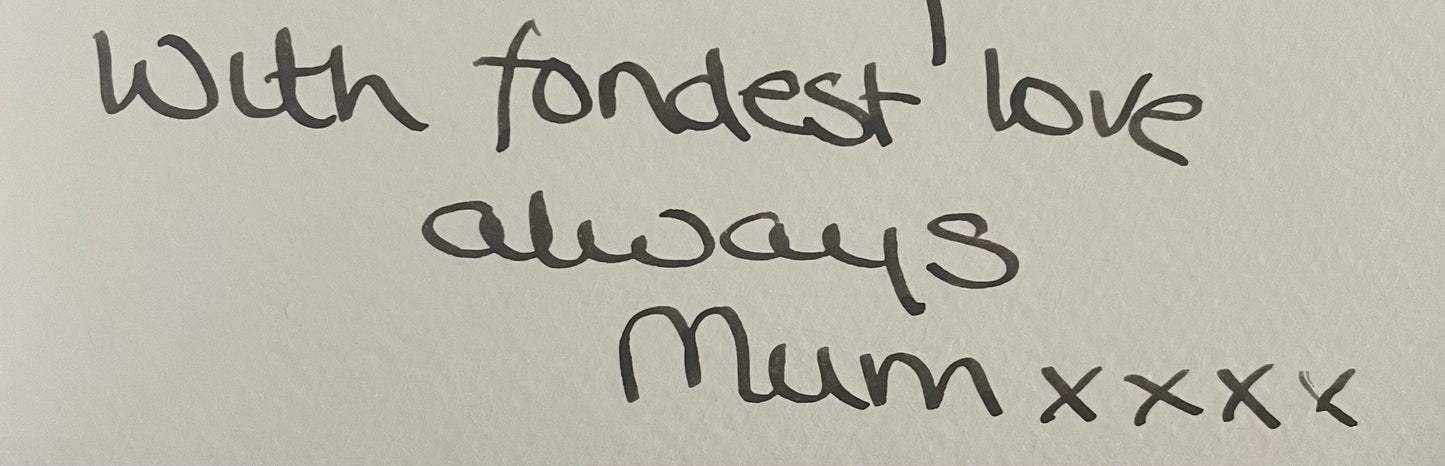 With fondest love
always
Mum xxxx